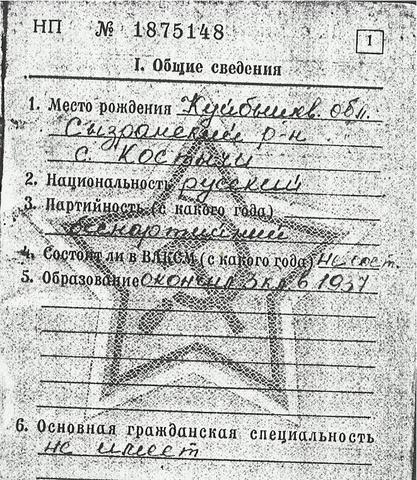 НП № 1875148
1
I. Общие сведения
1. Место рождения Куйбышев. обл.
Сызранский р-н
с. Костычи
2. Национальность русский
3. Партийность (с какого года)
беспартийный
4. Состоит ли в ВЛКСМ (с какого года) не сост.
5. Образование окончил 3 кл. в 1937
6. Основная гражданская специальность
не имеет